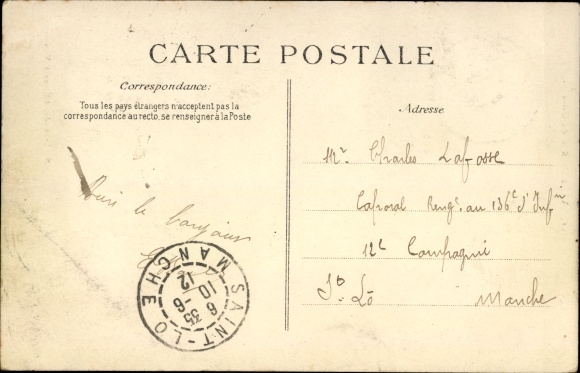 CARTE POSTALE
Correspondance:
Tous les pays étrangers n'acceptent pas la
correspondance au recto, se renseigner à la Poste
Adresse
Mr. Charles Lafosse
Caporal Rengé. au 136e d'Infie
12e Compagnie
St. Lô Manche
le
SAINT-LO MANCHE
6-35
10-6
12